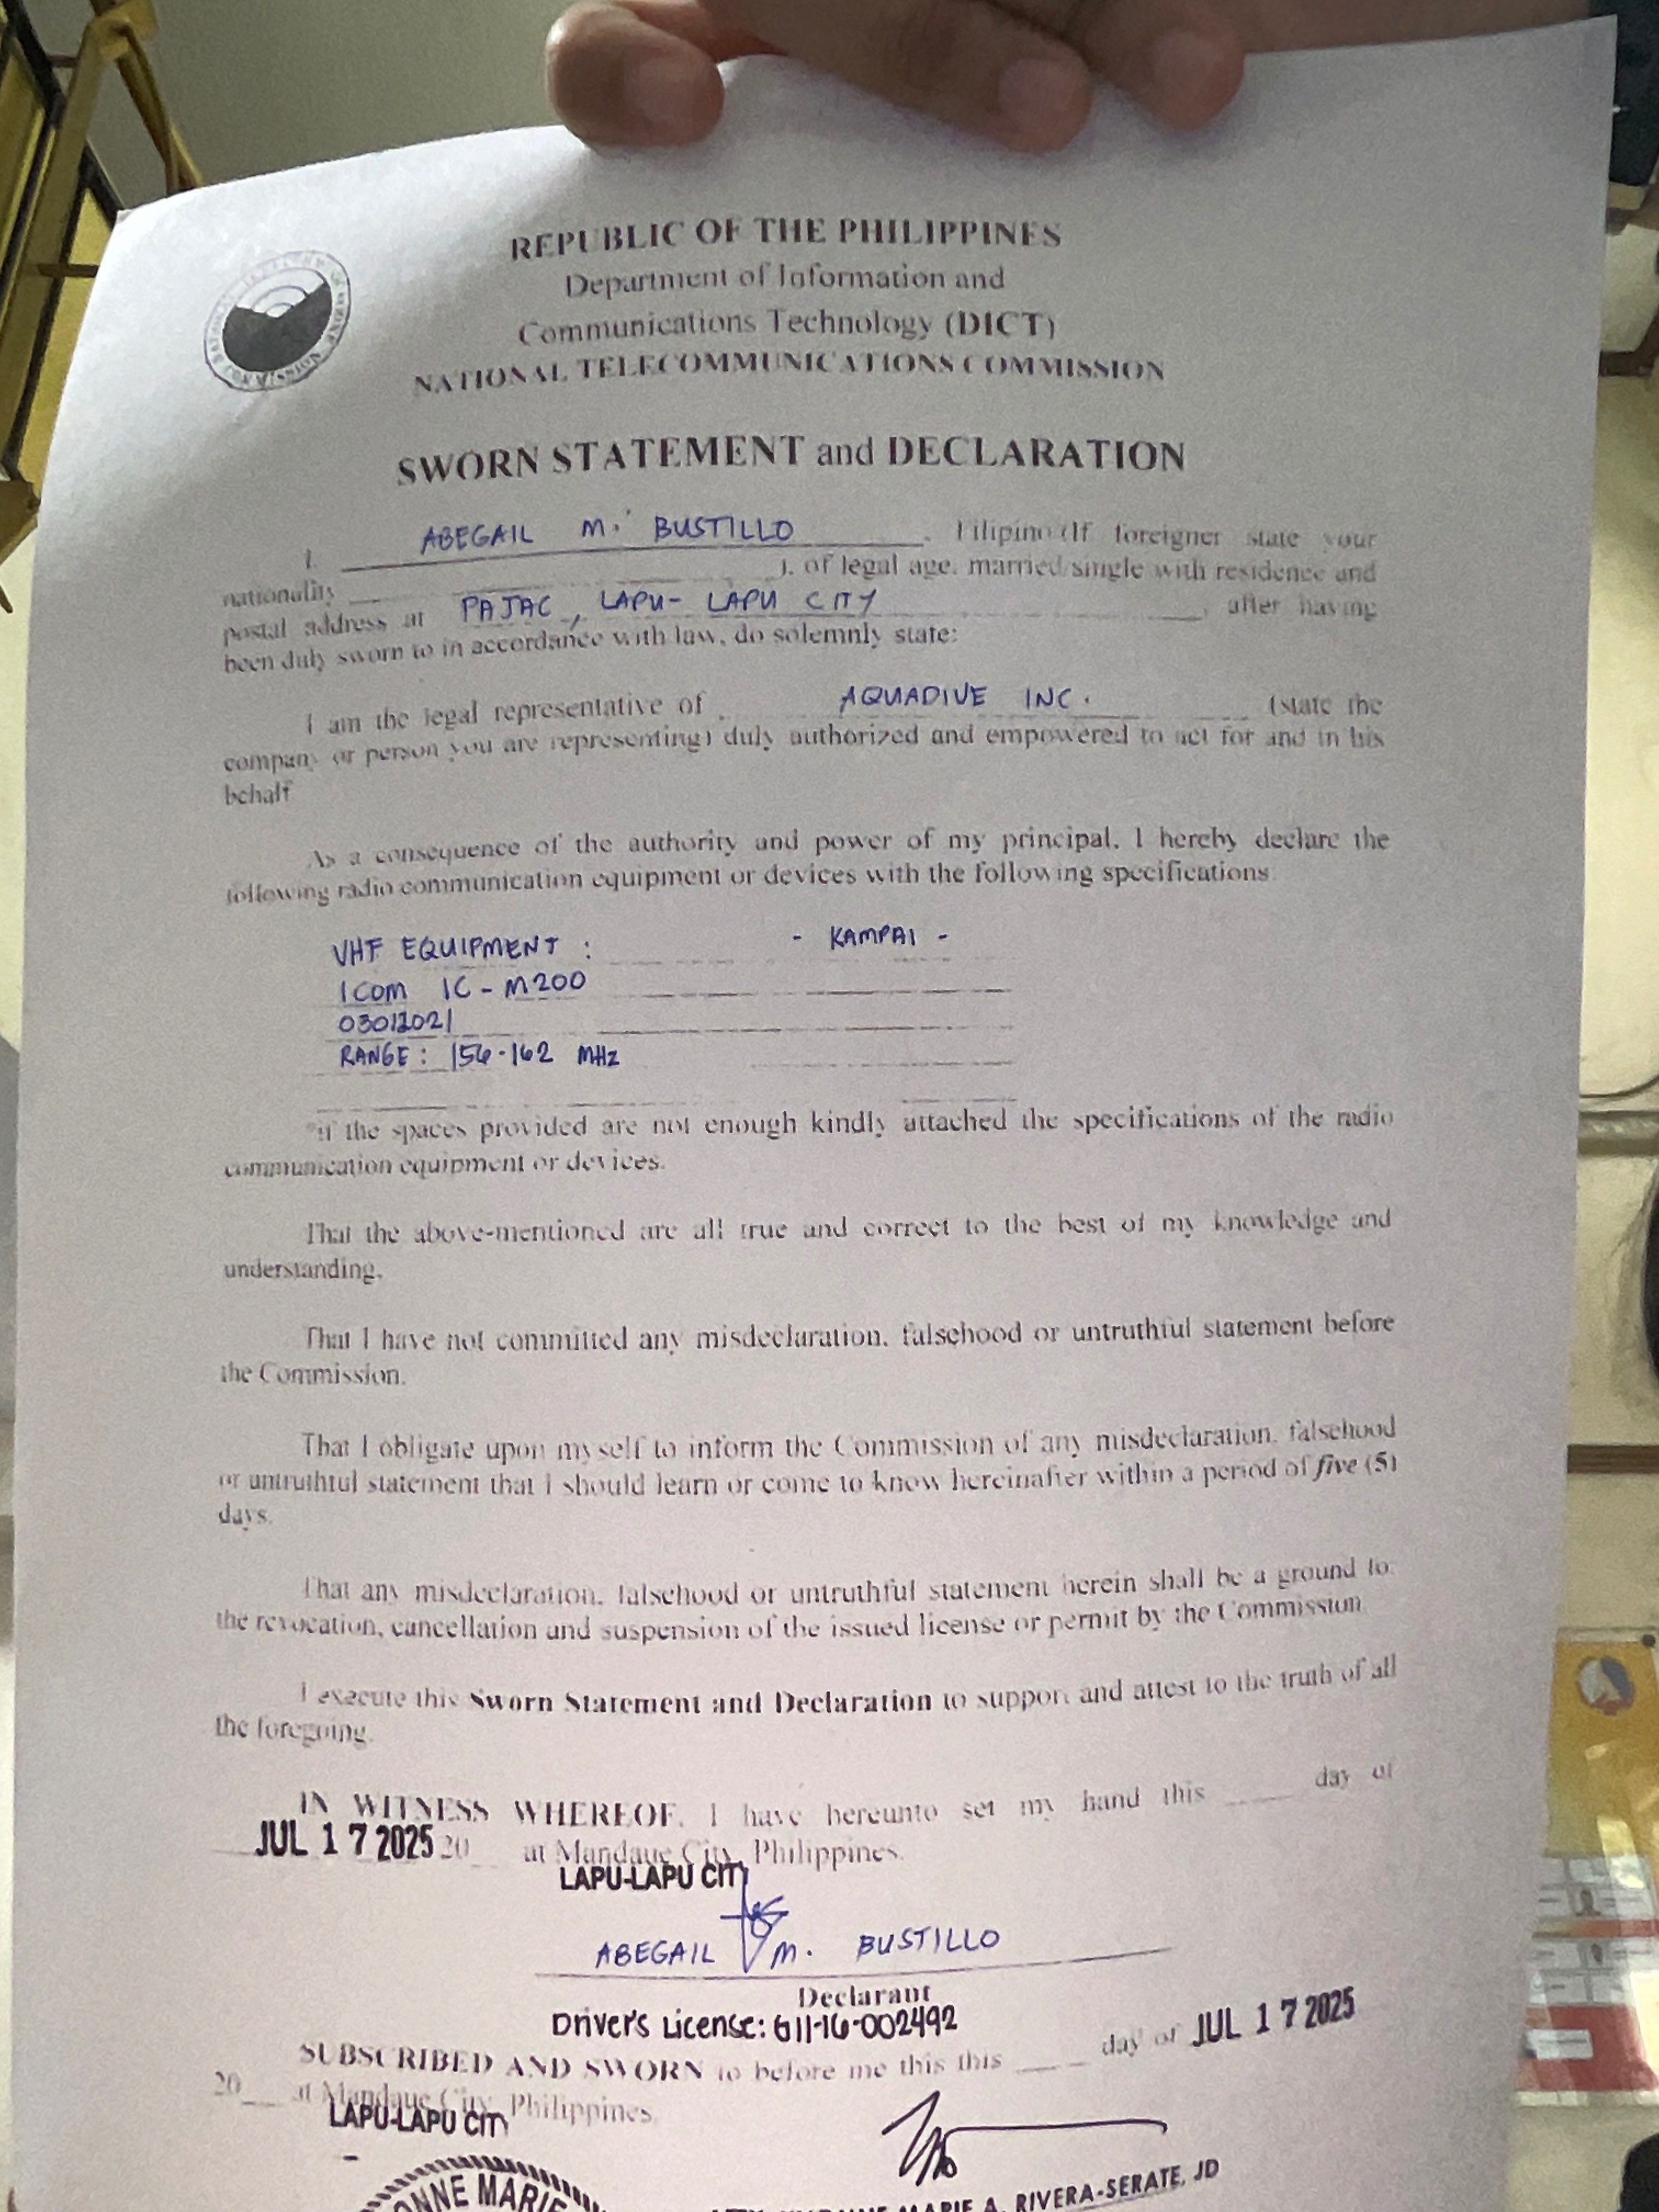 REPUBLIC OF THE PHILIPPINES
Department of Information and
Communications Technology (DICT)
NATIONAL TELECOMMUNICATIONS COMMISSION
SWORN STATEMENT and DECLARATION
I, ABEGAIL M. BUSTILLO, Filipino (If foreigner state your
nationality ), of legal age, married/single with residence and
postal address at PAJAC, LAPU-LAPU CITY, after having
been duly sworn to in accordance with law, do solemnly state:
I am the legal representative of AQUADIVE INC. (state the
company or person you are representing) duly authorized and empowered to act for and in his
behalf
As a consequence of the authority and power of my principal, I hereby declare the
following radio communication equipment or devices with the following specifications
VHF EQUIPMENT : - KAMPAI -
ICOM IC-M200
RANGE: 156-162 MHz
*if the spaces provided are not enough kindly attached the specifications of the radio
communication equipment or devices.
That the above-mentioned are all true and correct to the best of my knowledge and
understanding.
That I have not committed any misdeclaration, falsehood or untruthful statement before
the Commission.
That I obligate upon myself to inform the Commission of any misdeclaration, falsehood
or untruthful statement that I should learn or come to know hereinafter within a period of five (5)
days.
That any misdeclaration, falsehood or untruthful statement herein shall be a ground to
the revocation, cancellation and suspension of the issued license or permit by the Commission
I execute this Sworn Statement and Declaration to support and attest to the truth of all
the foregoing.
IN WITNESS WHEREOF, I have hereunto set my hand this ____ day of
JUL 17 2025 20__ at Mandaue City, Philippines.
LAPU-LAPU CITY
ABEGAIL M. BUSTILLO
Declarant
Driver's License: G11-16-002492
SUBSCRIBED AND SWORN to before me this this ____ day of JUL 17 2025
20__ at Mandaue City, Philippines.
LAPU-LAPU CITY
MARIE A. RIVERA-SERATE, JD
ONNE MARIE